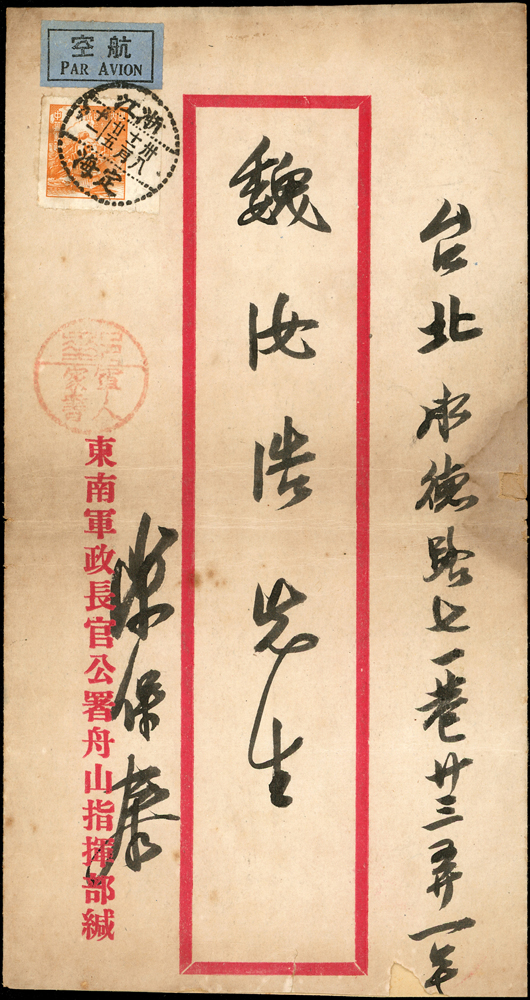 航空
PAR AVION
浙江
卅八
十一月
廿五
十一
定海
台北承德路七一巷廿三弄一
魏汝浩先生
軍人
家書
東南軍政長官公署舟山指揮部緘
保